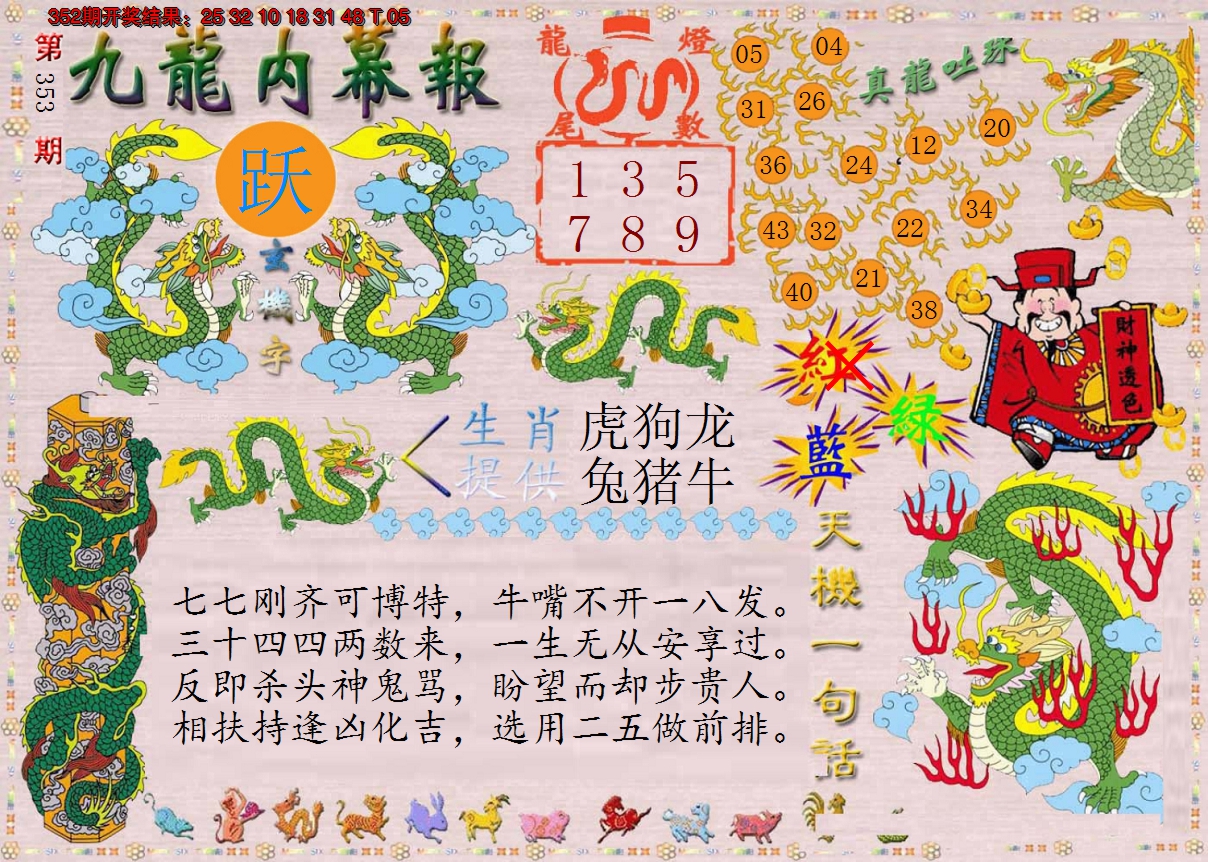 352期开奖结果：25 32 10 18 31 48 T 05
第353期
九龍内幕報
跃
玄機字
龍燈尾數
1 3 5
7 8 9
真龍吐珠
05 04
31 26
36 24 12 20
43 32 22 34
40 21 38
財神透色
紅
緑
藍
生肖 虎狗龙
提供 兔猪牛
天機一句話
七七刚齐可博特，牛嘴不开一八发。
三十四四两数来，一生无从安享过。
反即杀头神鬼骂，盼望而却步贵人。
相扶持逢凶化吉，选用二五做前排。